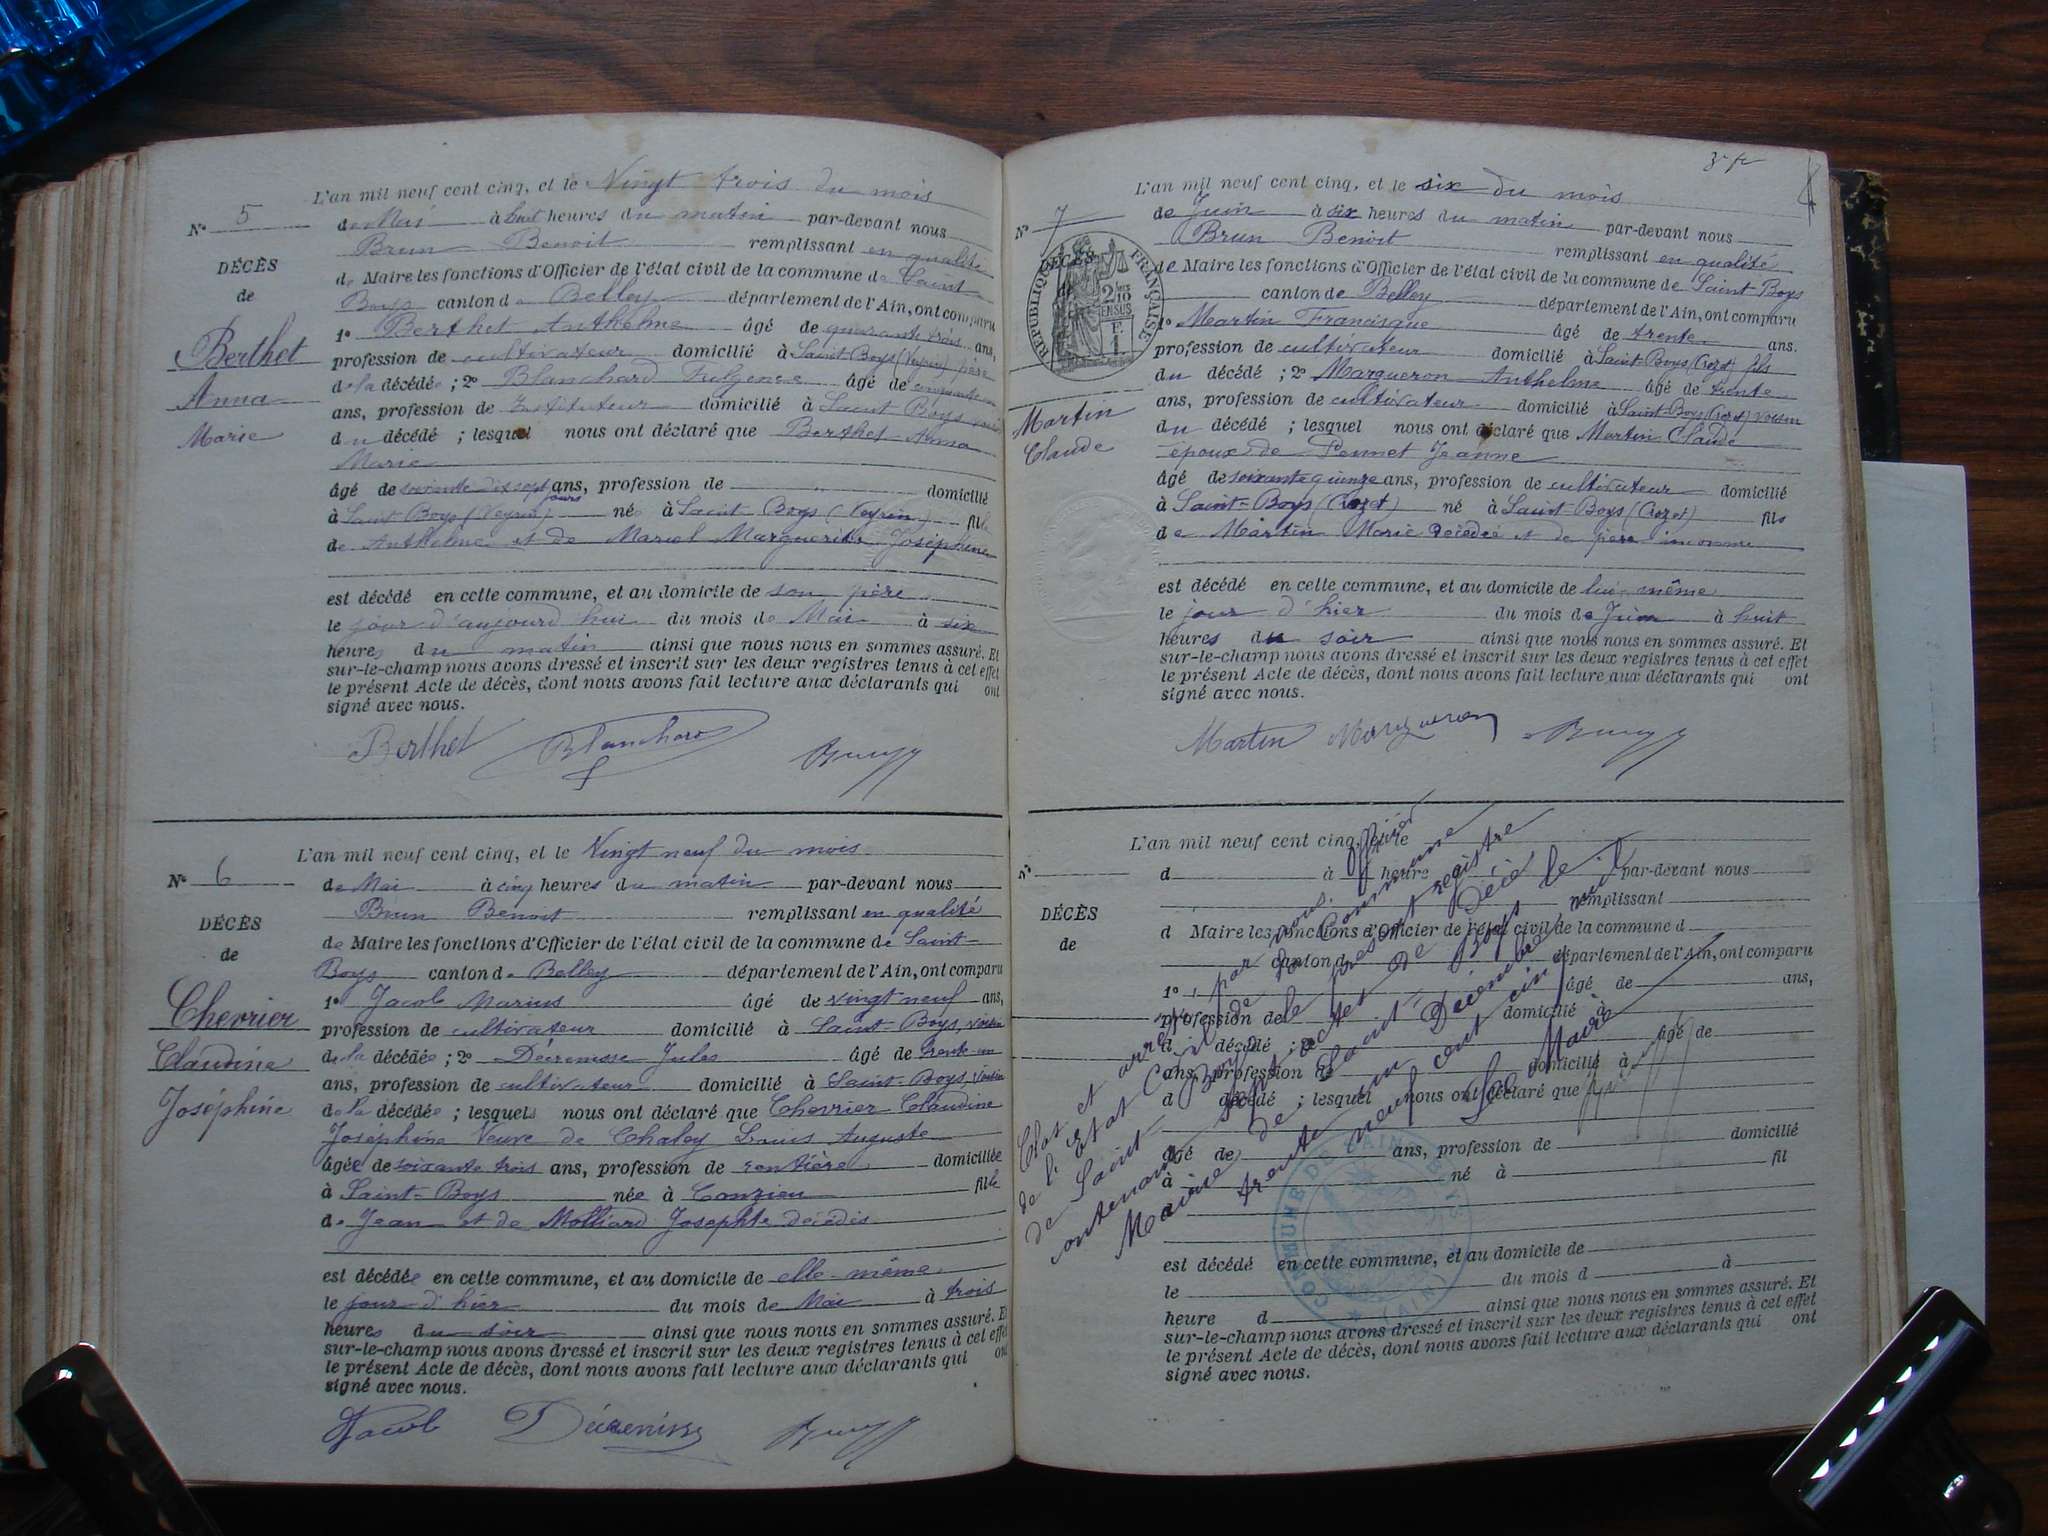 L'an mil neuf cent cinq, et le Vingt trois du mois
N° 5
de Mai à huit heures du matin par-devant nous
Brun Benoit remplissant en qualité
DÉCÈS
de
de Maire les fonctions d'Officier de l'état civil de la commune de Saint
Boys canton de Belley département de l'Ain, ont comparu
1° Berthet Anthelme âgé de quarante trois ans,
Berthet
Anna
Marie
profession de cultivateur domicilié à Saint Boys (Veyrin) père
de la décédée ; 2° Blanchard Fulgence âgé de cinquante
ans, profession de Instituteur domicilié à Saint Boys voisin
du décédé ; lesquel nous ont déclaré que Berthet Anna
Marie
âgé de soixante dix sept jours ans, profession de domicilié
à Saint Boys (Veyrin) née à Saint Boys (Veyrin) fille
de Anthelme et de Marcel Marguerite Joséphine
est décédé en cette commune, et au domicile de son père
le jour d'aujourd'hui du mois de Mai à six
heures du matin ainsi que nous nous en sommes assuré. Et
sur-le-champ nous avons dressé et inscrit sur les deux registres tenus à cet effet
le présent Acte de décès, dont nous avons fait lecture aux déclarants qui ont
signé avec nous.
Berthet Blanchard
L'an mil neuf cent cinq, et le Vingt neuf du mois
N° 6
de Mai à cinq heures du matin par-devant nous
Brun Benoit remplissant en qualité
DÉCÈS
de
de Maire les fonctions d'Officier de l'état civil de la commune de Saint-
Boys canton de Belley département de l'Ain, ont comparu
1° Jacob Marius âgé de vingt neuf ans,
Chevrier
Claudine
Joséphine
profession de cultivateur domicilié à Saint-Boys, voisin
de la décédée ; 2° Décremisse Jules âgé de trente un
ans, profession de cultivateur domicilié à Saint-Boys, voisin
de la décédée ; lesquels nous ont déclaré que Chevrier Claudine
Joséphine Veuve de Chaley Louis Auguste
âgée de soixante trois ans, profession de rentière domiciliée
à Saint-Boys née à Conzieu fille
de Jean et de Molliard Josephte décédés
est décédée en cette commune, et au domicile de elle-même
le jour d'hier du mois de Mai à trois
heures du soir ainsi que nous nous en sommes assuré. Et
sur-le-champ nous avons dressé et inscrit sur les deux registres tenus à cet effet
le présent Acte de décès, dont nous avons fait lecture aux déclarants qui ont
signé avec nous.
Jacob
L'an mil neuf cent cinq, et le six du mois
N° 7
de Juin à six heures du matin par-devant nous
Brun Benoit remplissant en qualité
DÉCÈS
RÉPUBLIQUE FRANÇAISE
2/10 EN SUS
F. 1
de Maire les fonctions d'Officier de l'état civil de la commune de Saint Boys
canton de Belley département de l'Ain, ont comparu
1° Martin Francisque âgé de trente ans.
Martin
Claude
profession de cultivateur domicilié à Saint-Boys (Crozet) fils
du décédé ; 2° Marqueron Anthelme âgé de trente
ans, profession de cultivateur domicilié à Saint-Boys (Crozet) voisin
du décédé ; lesquel nous ont déclaré que Martin Claude
époux de Pennet Jeanne
âgé de soixante quinze ans, profession de cultivateur domicilié
à Saint-Boys (Crozet) né à Saint-Boys (Crozet) fils
de Martin Marie décédée et de père inconnu
est décédé en cette commune, et au domicile de lui-même
le jour d'hier du mois de Juin à huit
heures du soir ainsi que nous nous en sommes assuré. Et
sur-le-champ nous avons dressé et inscrit sur les deux registres tenus à cet effet
le présent Acte de décès, dont nous avons fait lecture aux déclarants qui ont
signé avec nous.
Martin Marqueron
L'an mil neuf cent cinq, et le
N°
d à heure par-devant nous
remplissant
DÉCÈS
de
d Maire les fonctions d'Officier de l'état civil de la commune d
canton d département de l'Ain, ont comparu
1° âgé de ans,
profession de domicilié
d décédé ; 2° âgé de
ans, profession de domicilié à
d décédé ; lesquel nous ont déclaré que
âgé de ans, profession de domicilié
à né à fil
est décédé en cette commune, et au domicile de
le du mois d à
heure d ainsi que nous nous en sommes assuré. Et
sur-le-champ nous avons dressé et inscrit sur les deux registres tenus à cet effet
le présent Acte de décès, dont nous avons fait lecture aux déclarants qui ont
signé avec nous.
Clos et arrêté par nous Officier
de l'Etat Civil de la Commune
de Saint-Boys le présent registre
contenant sept actes de Décès
Mairie de Saint-Boys le
trente un Décembre mil
neuf cent cinq
Le Maire
COMMUNE DE SAINT-BOYS
(AIN)